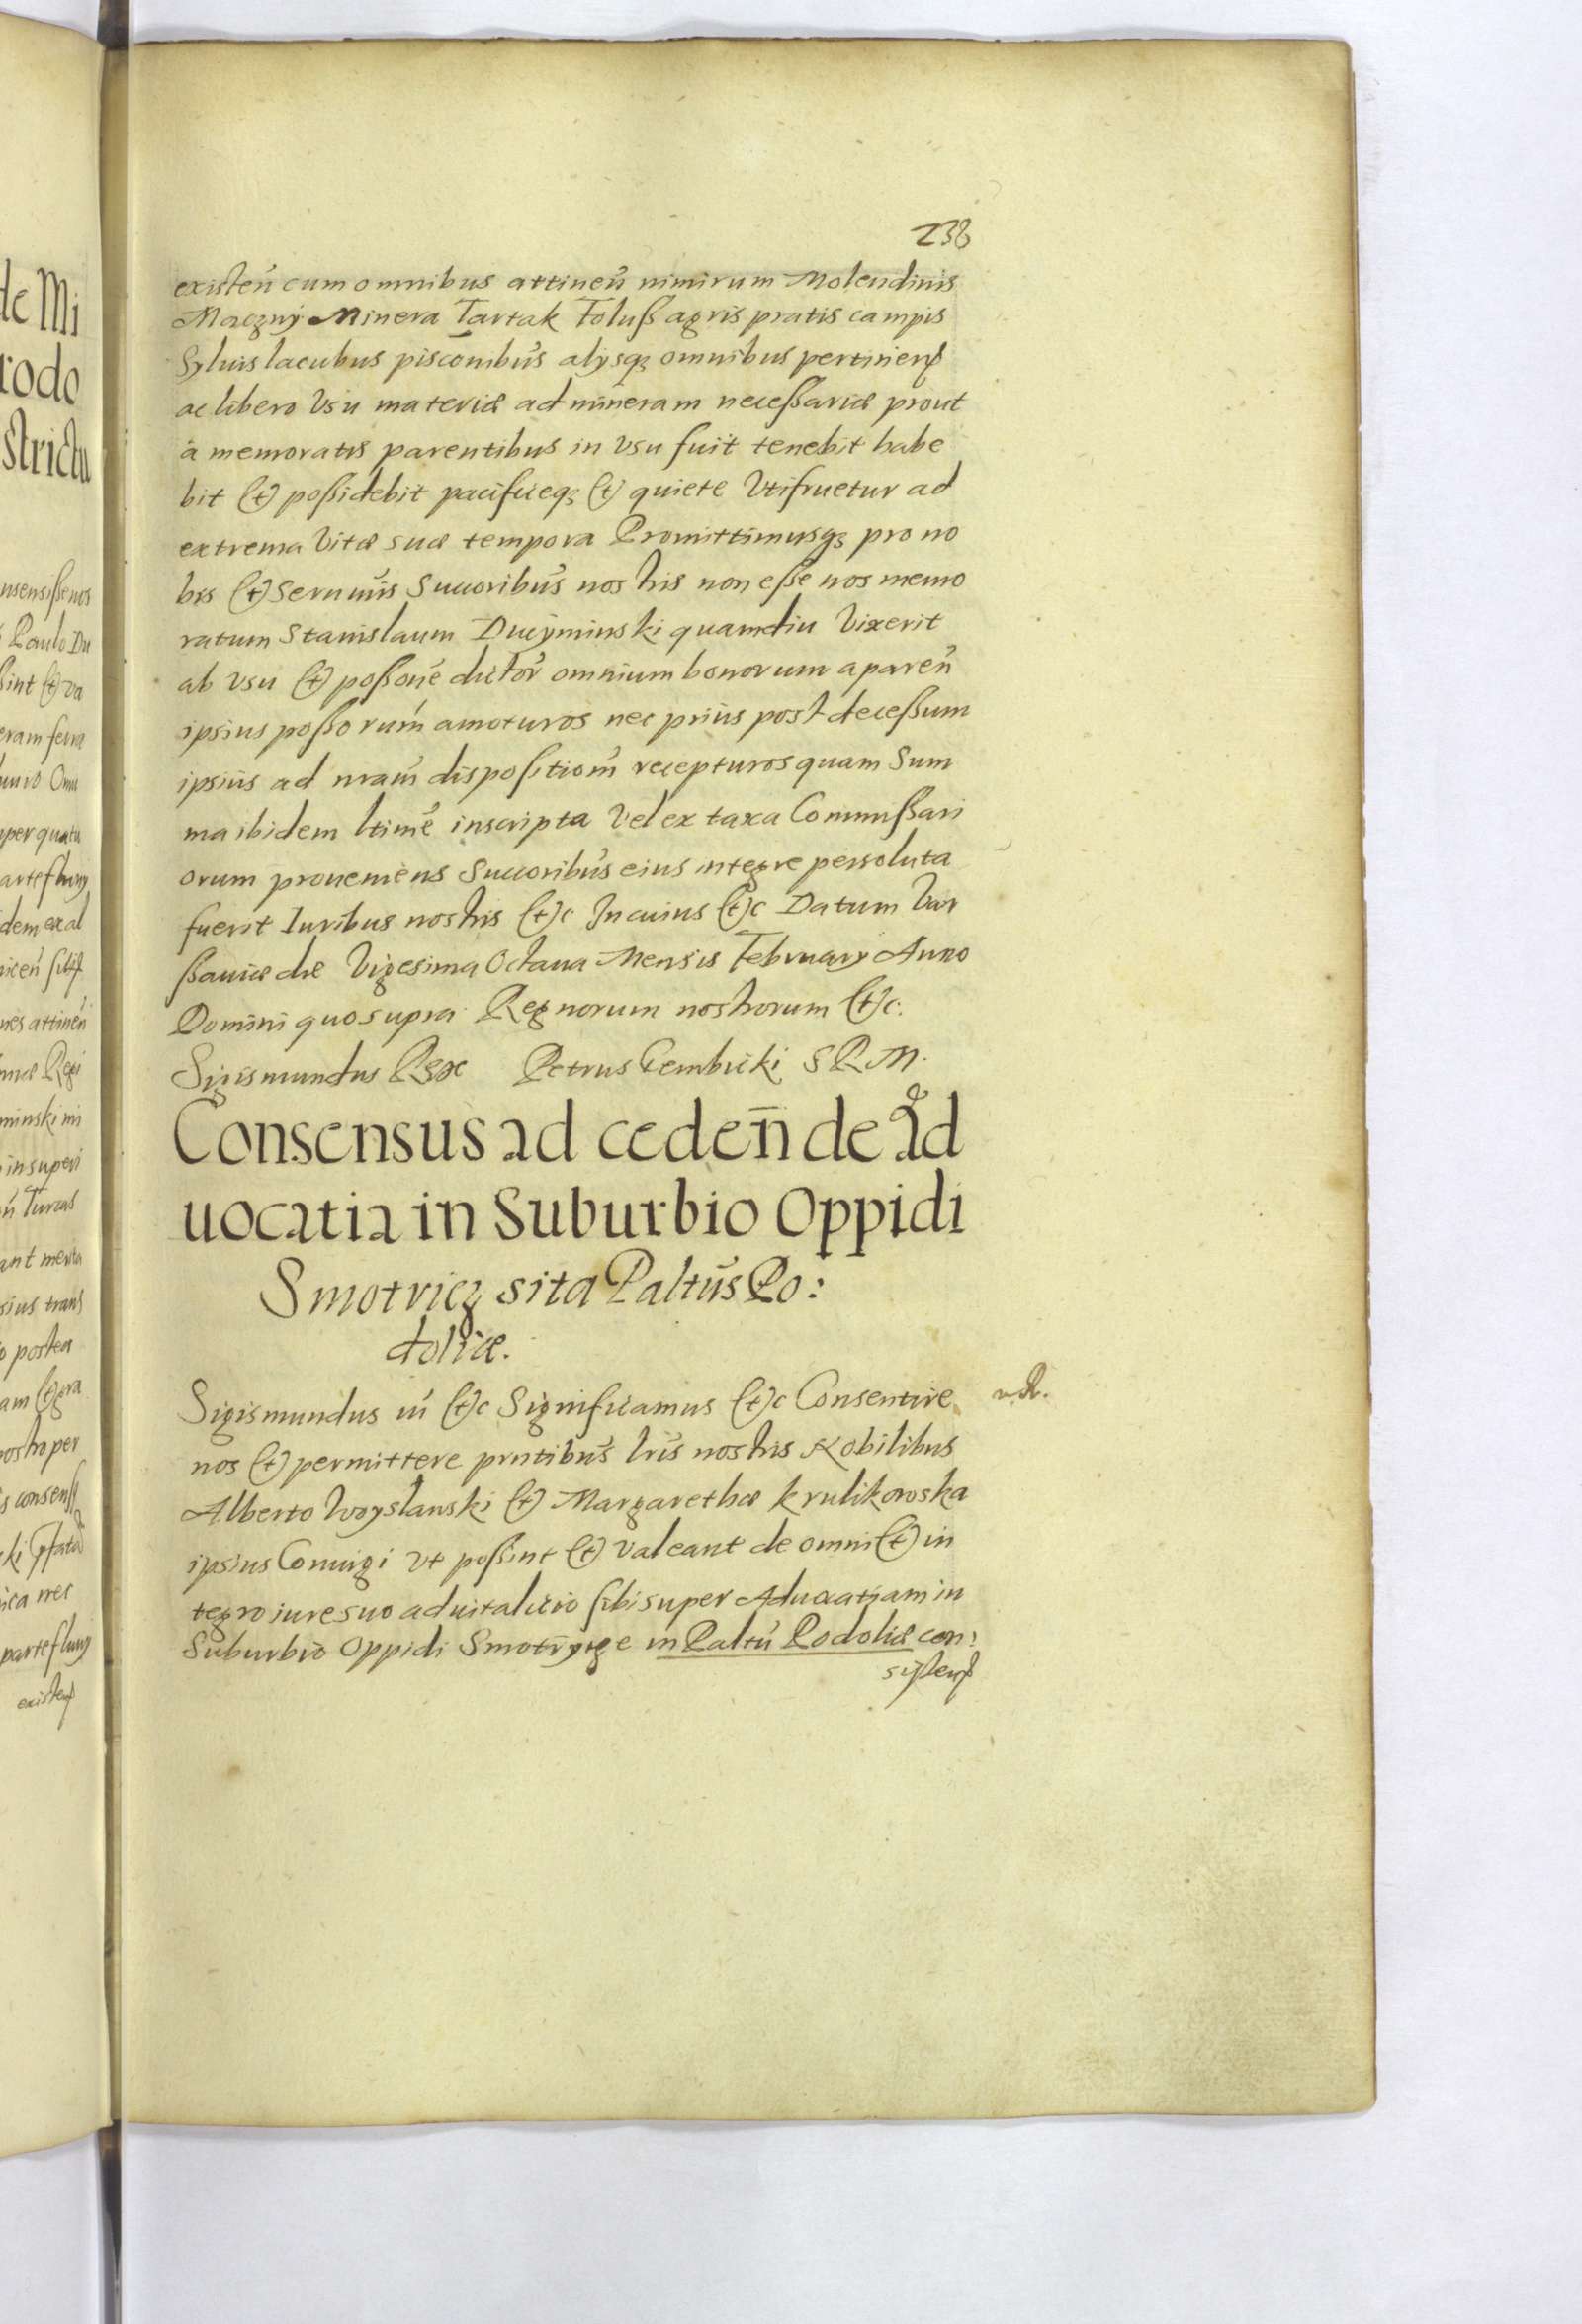 238
existen̄ cum omnibus attinen̄ nimirum Molendinis
Maczny Minera Tartak Foluß agris pratis campis
Syluis lacubus písconibus̄ alijsq₃ omnibus pertinen
ac libero Vsu materiæ ad mineram neceßariæ prout
á memoratis parentibus in vsu fuit tenebit habe
bit (et) poßidebit pacificeq₃ (et) quiete Vtifruetur ad
extrema Vitæ suæ tempora Promittimusq₃ pro no
bis (et) Sernm̄is Succoribus̄ nostris non eße nos memo
ratum Stanislaum Duczyminski quamdiu Vixerit
ab vsu (et) poßonē dictor̄ omnium bonorum a paren̄
ipsius poßorum̄ amoturos nec prius post deceßum
ipsius ad nram̄ dispositiom̄ recepturos quam Sum
ma ibidem ltimē inscripta Vel ex taxa Commißari
orum proueniens Succoribus̄ eius integre persoluta
fuerit Iuribus nostris (et)c In cuius (et)c Datum Var
ßauiæ die Vigesima Octaua Mensis February Anno
Domini quo supra Regnorum nostrorum (et)c:
Sigismundus Rex Petrus Gembicki S R M.
Consensus ad ceden̄ de Ad
uocatia in Suburbio Oppidi
Smotricz sita Paltus̄ Po:
doliæ.
Sigismundus iii (et)c Significamus (et)c Consentire
nos (et) permittere prntibus̄ lris̄ nostris Nobilibus
Alberto Woyslawski (et) Margarethæ Krulikowska
ipsius Coniugi vt poßint (et) valeant de omni (et) in
tegro iure suo aduitalicio sibi super Aduocatiam in
Suburbio Oppidi Smotrycze in Paltū Podoliæ con:
sisten